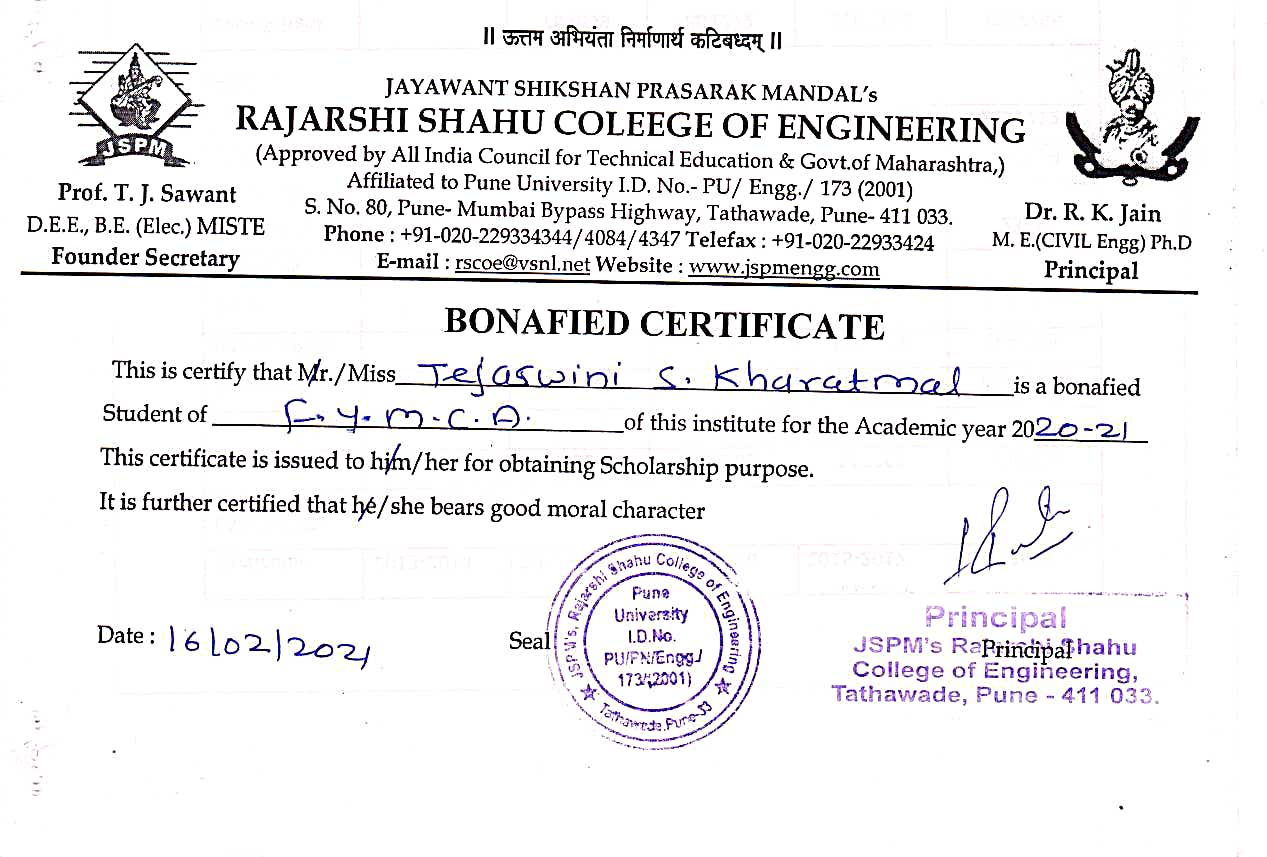 ॥ ऊत्तम अभियंता निर्माणार्थ कटिबध्दम् ॥
JAYAWANT SHIKSHAN PRASARAK MANDAL's
RAJARSHI SHAHU COLEEGE OF ENGINEERING
(Approved by All India Council for Technical Education & Govt.of Maharashtra,)
Affiliated to Pune University I.D. No.- PU/ Engg./ 173 (2001)
S. No. 80, Pune- Mumbai Bypass Highway, Tathawade, Pune- 411 033.
Phone : +91-020-229334344/4084/4347 Telefax : +91-020-22933424
E-mail : rscoe@vsnl.net Website : www.jspmengg.com
JSPM
Prof. T. J. Sawant
D.E.E., B.E. (Elec.) MISTE
Founder Secretary
Dr. R. K. Jain
M. E.(CIVIL Engg) Ph.D
Principal
BONAFIED CERTIFICATE
This is certify that Mr./Miss Tejaswini S. Kharatmal is a bonafied
Student of F.Y.M.C.A. of this institute for the Academic year 2020-21
This certificate is issued to him/her for obtaining Scholarship purpose.
It is further certified that he/she bears good moral character
Date : 16/02/2021
Seal
JSPM's, Rajarshi Shahu College of Engineering
Tathawade, Pune-33
Pune
University
I.D.No.
PU/PN/Engg./
173/(2001)
Principal
Principal
JSPM's Rajarshi Shahu
College of Engineering,
Tathawade, Pune - 411 033.